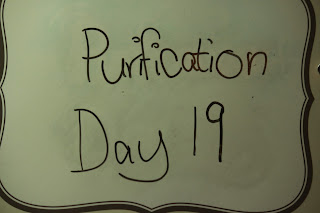 Purification
Day 19